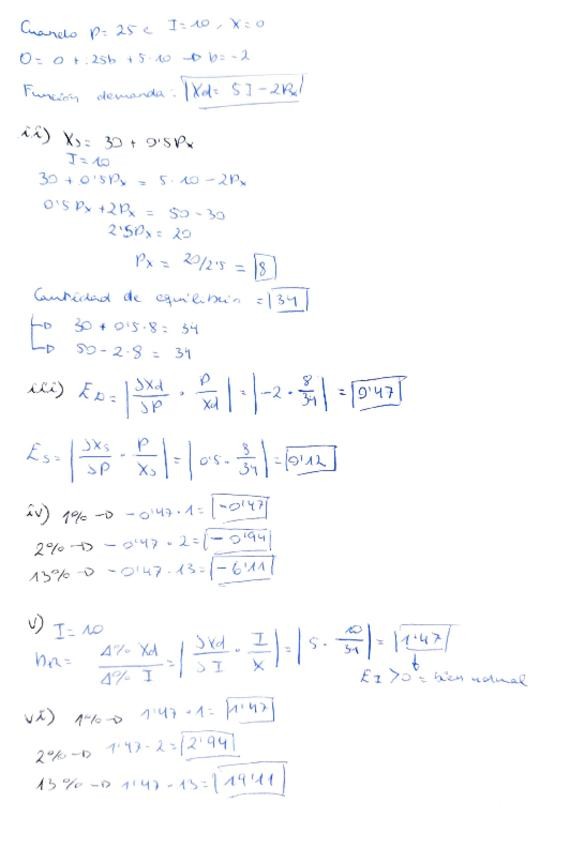 Cuando P=25 e I=10, X=0
0= 0 + 25b + 5·10 → b=-2
Función demanda: Xd= 5I-2Px
ii) Xs= 30 + 0'5Px
I=10
30+0'5Px = 5·10-2Px
0'5Px+2Px = 50-30
2'5Px= 20
Px = 20/2'5 = 8
Cantidad de equilibrio = 34
→ 30+0'5·8= 34
→ 50-2·8= 34
iii) ED= |∂Xd/∂P · P/Xd| = |-2 · 8/34| = 0'47
Es= |∂Xs/∂P · P/Xs| = |0'5 · 8/34| = 0'12
iv) 1% → -0'47·1= -0'47
2% → -0'47·2= -0'94
13% → -0'47·13= -6'11
v) I=10
= Δ% Xd/Δ% I = |∂Xd/∂I · I/X| = |5 · 10/34| = 1'47
EI >0 = bien normal
vi) 1% → 1'47·1= 1'47
2% → 1'47·2= 2'94
13% → 1'47·13= 19'11